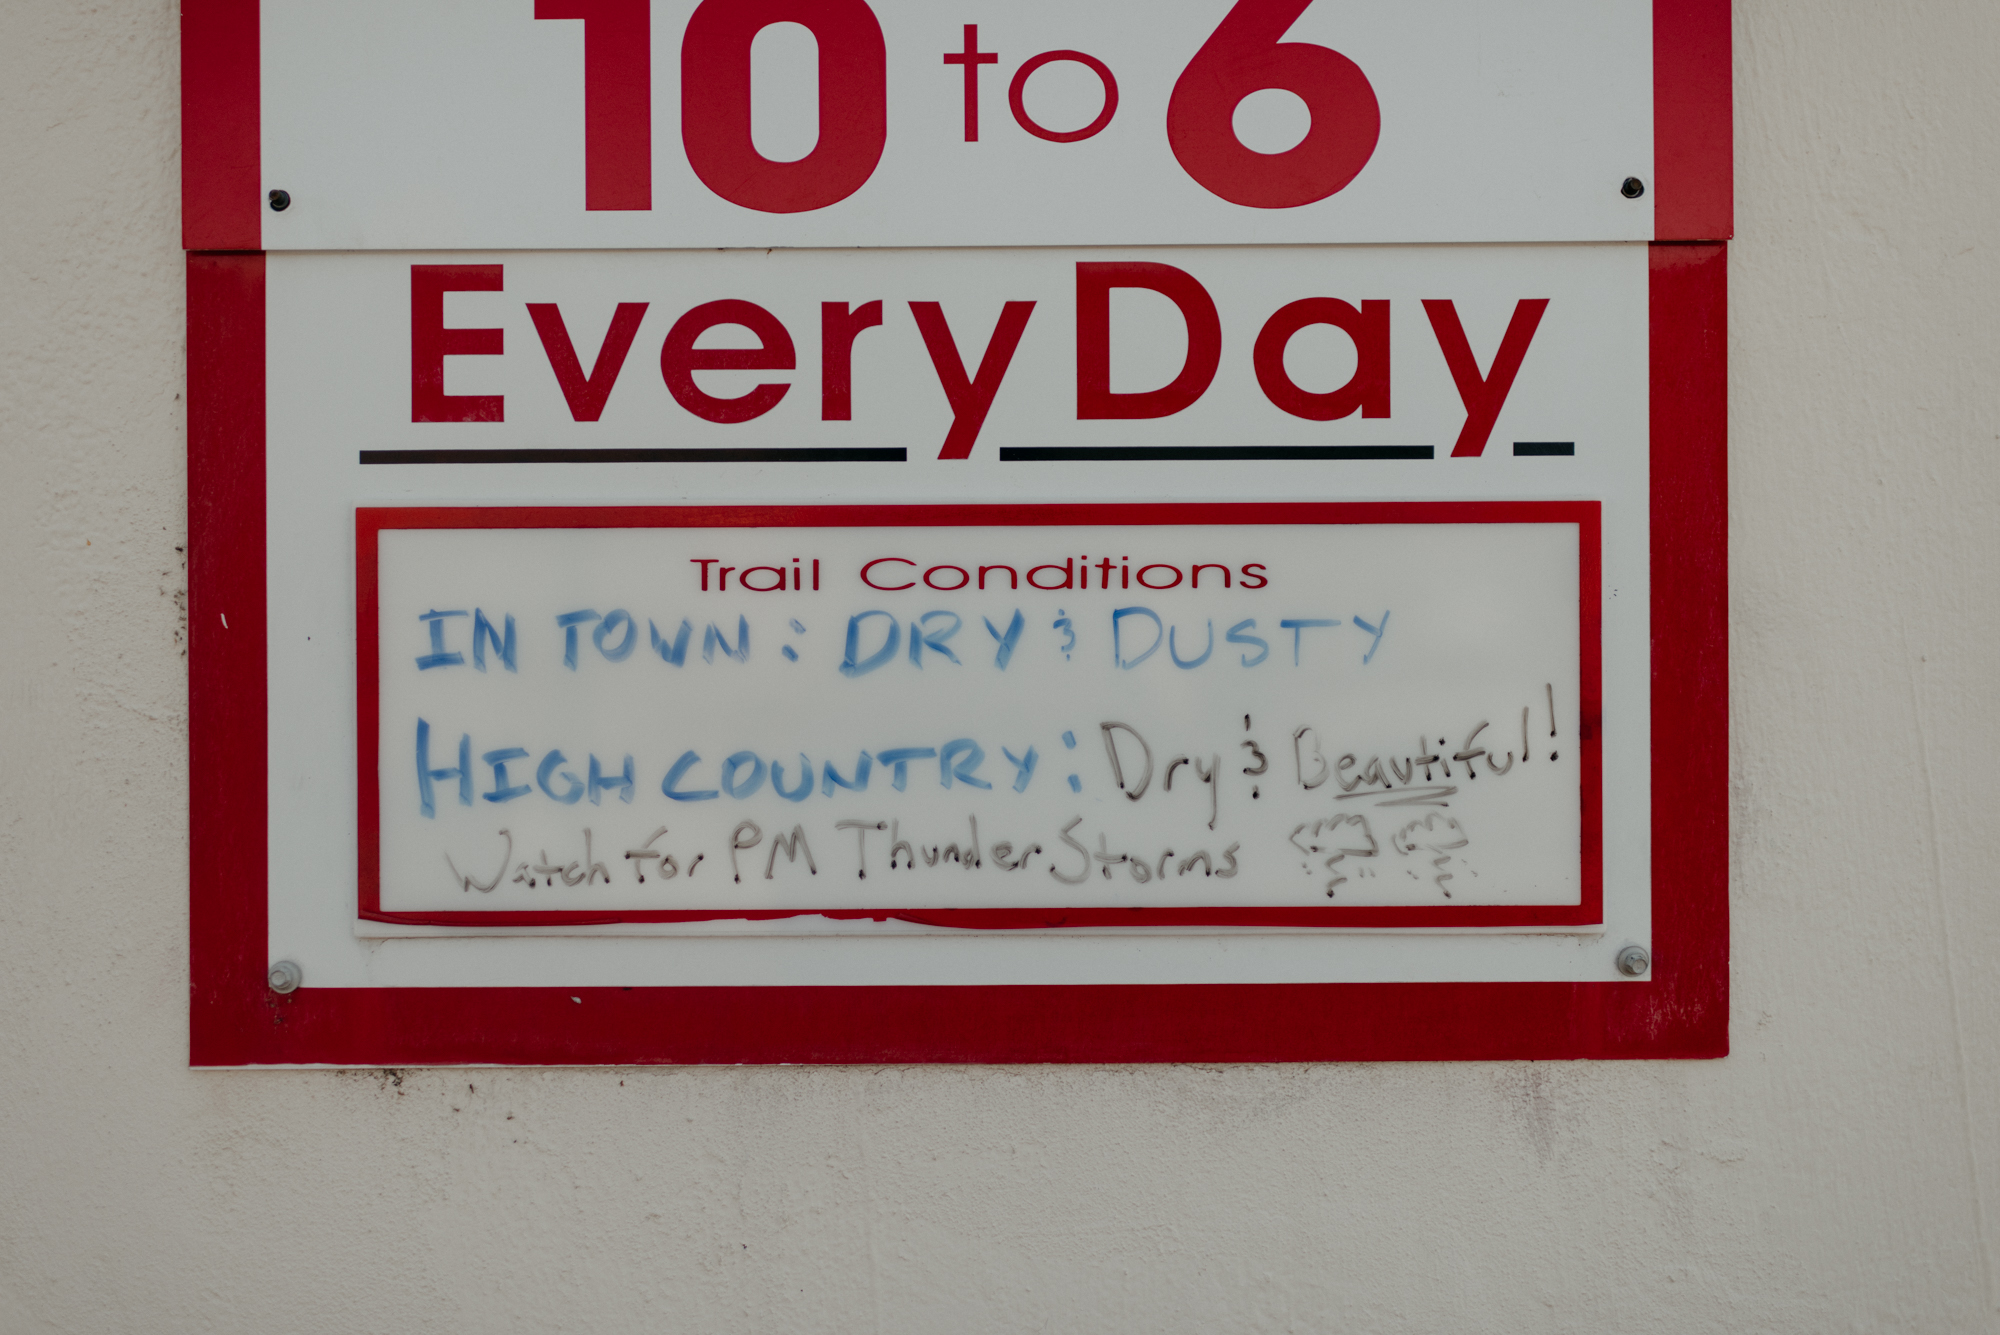 10 to 6
Every Day
Trail Conditions
IN TOWN: DRY & DUSTY
HIGH COUNTRY: Dry & Beautiful!
Watch for PM ThunderStorms